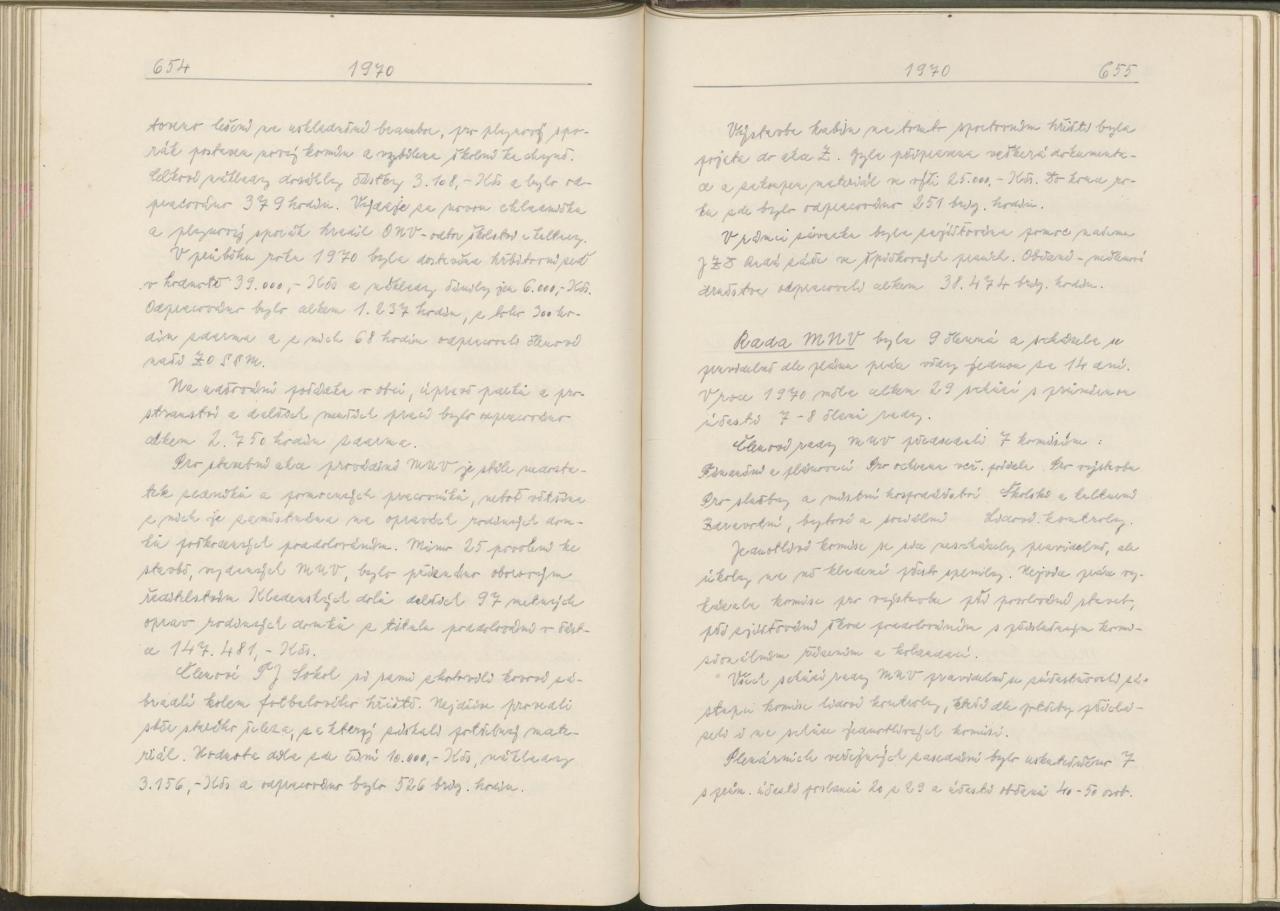 654 1970
toreno lešení na uskladnění brambor, pro plynový spo-
rák postaven nový komín a vybílena školní kuchyně.
Celkové náklady dosáhly částky 3.108,- Kčs a bylo od-
pracováno 379 hodin. Výdaje za novou chladničku
a plynový sporák hradil ONV-odbor školství a kultury.
V průběhu roku 1970 byla dostavěna hřbitovní zeď
v hodnotě 39.000,- Kčs a náklady činily jen 6.000,- Kčs.
Odpracováno bylo celkem 1.237 hodin, z toho 300 ho-
din zdarma a z nich 68 hodin odpracovali členové
naší ZO
Na udržování pořádku v obci, úpravě parků a pro-
stranství a dalších menších prací bylo odpracováno
celkem 2.750 hodin zdarma.
Pro stavební akce prováděné MNV je stále nedosta-
tek zedníků a pomocných pracovníků, neboť většina
z nich je zaměstnána na opravách rodinných dom-
ků poškozených poddolováním. Mimo 25 povolení ke
stavbě, vydaných MNV, bylo přiznáno oborovým
ředitelstvím Kladenských dolů dalších 97 nutných
oprav rodinných domků z titulu poddolování v část-
ce 147.481,- Kčs.
Členové TJ Sokol si sami zhotovili kovové zá-
bradlí kolem fotbalového hřiště. Nejdříve provedli
sběr starého železa, za který získali potřebný mate-
riál. Hodnota díla zde činí 10.000,- Kčs, náklady
3.156,- Kčs a odpracováno bylo 526 brig. hodin.
1970 655
Výstavba kabin na tomto sportovním hřišti byla
pojata do akce Z. Byla připravena veškerá dokumenta-
ce a zakoupen materiál ve výši 25.000,- Kčs. Do konce ro-
ku zde bylo odpracováno 251 brig. hodin.
V rámci závazku byla zajišťována pomoc našemu
JZD Rudá záře ve špičkových pracích. Občané - nečlenové
družstva odpracovali celkem 38.474 brig. hodin.
Rada MNV byla 9 členná a scházela se
pravidelně dle plánu práce vždy jednou za 14 dní.
V roce 1970 měla celkem 29 schůzí s průměrnou
účastí 7-8 členů rady.
Členové rady MNV předsedali 7 komisím:
Finanční a plánovací Pro ochranu veř. pořádku Pro výstavbu
Pro služby a místní hospodářství Školská a kulturní
Zdravotní, bytová a sociální Lidové kontroly.
Jednotlivé komise se sice nescházely pravidelně, ale
úkoly na ně kladené přesto splnily. Nejvíce práce vy-
kázala komise pro výstavbu při povolování staveb,
při zjišťování škod poddolováním s příslušným komi-
sionálním řízením a kolaudací.
Všech schůzí rady MNV pravidelně se zúčastňovali zá-
stupci komise lidové kontroly, kteří dle potřeby přichá-
zeli i na schůze jednotlivých komisí.
Plenárních veřejných zasedání bylo uskutečněno 7
s prům. účastí poslanců 20 z 29 a účastí občanů 40-50 osob.